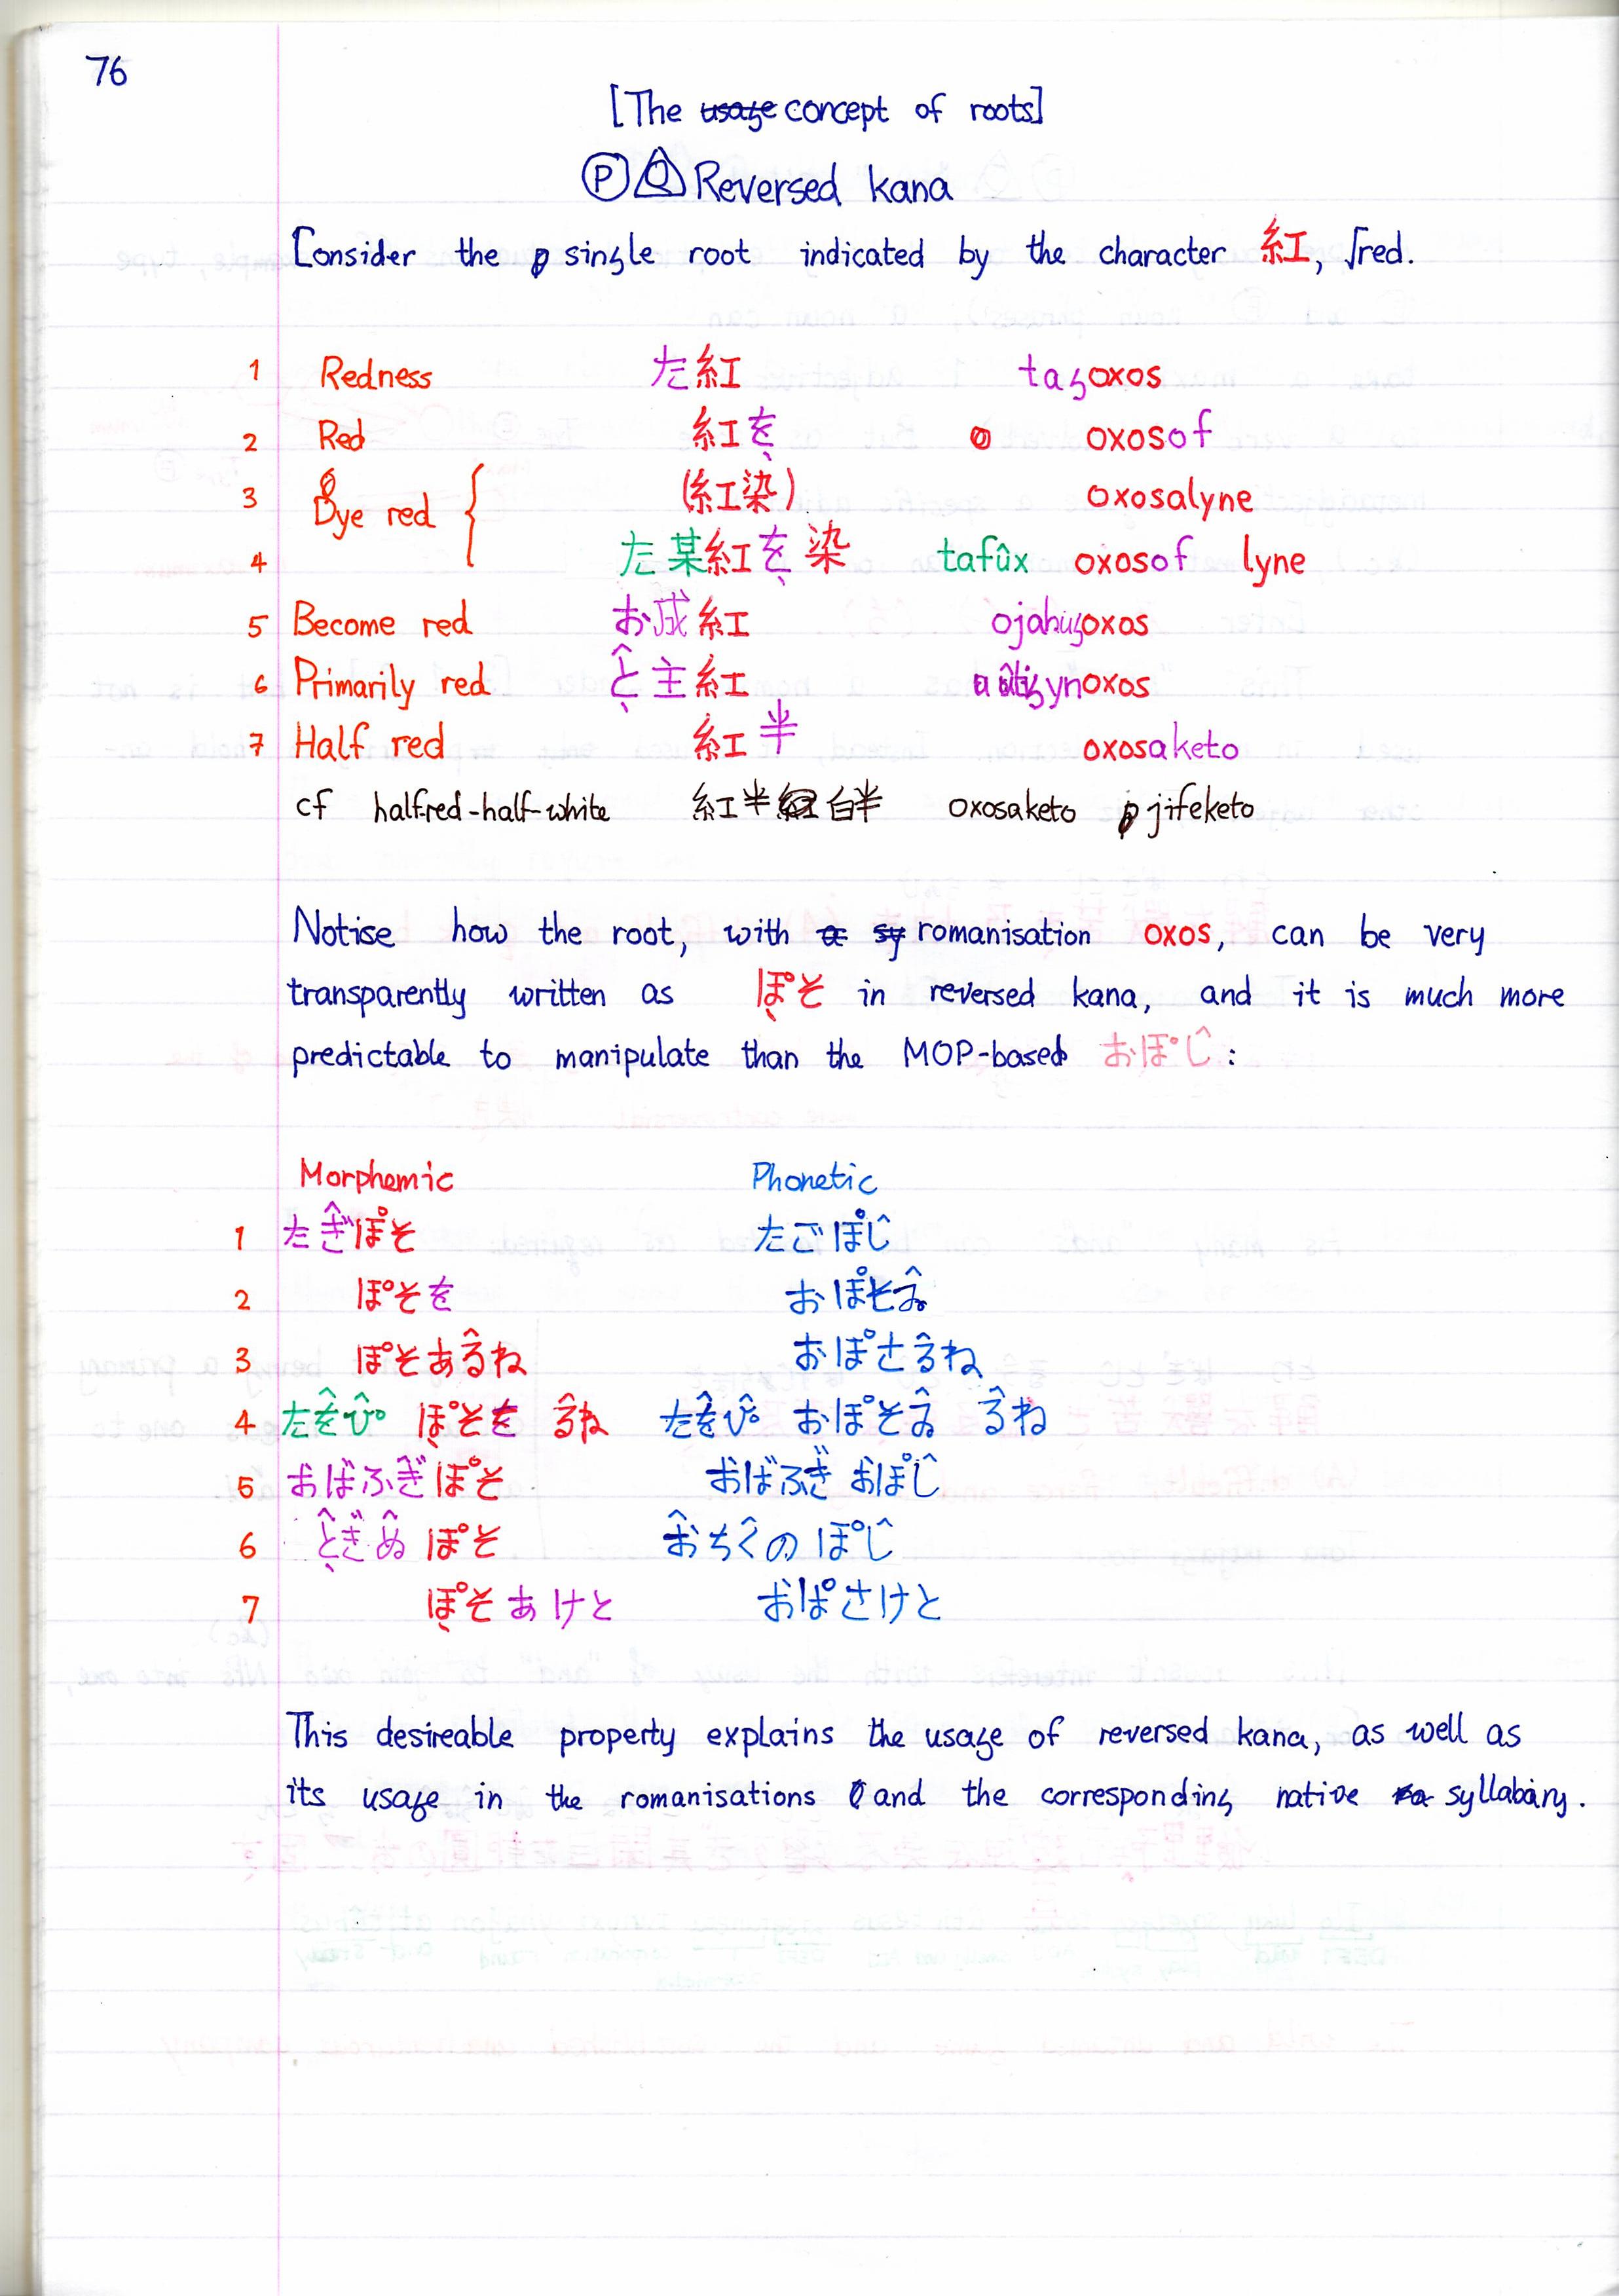 76
[The concept of roots]
Ⓟ Reversed kana
Consider the single root indicated by the character 紅, √red.
1 Redness た紅 tagoxos
2 Red 紅を oxosof
3 Dye red (紅染) oxosalyne
4 た某紅を染 tafûx oxosof lyne
5 Become red お成紅 ojahugoxos
6 Primarily red と主紅 ynoxos
7 Half red 紅半 oxosaketo
cf halfred-half-white 紅半 白半 oxosaketo jifeketo
Notise how the root, with romanisation oxos, can be very
transparently written as ぽそ in reversed kana, and it is much more
predictable to manipulate than the MOP-based おぽじ̂ :
Morphemic Phonetic
1 たぎ̂ぽそ たごぽじ̂
2 ぽそを おぽそゐ̂
3 ぽそある̂ね おぽさる̂ね
4 たを̂ひ̂゜ ぽそを る̂ね たを̂ひ̂゜ おぽそゐ̂ る̂ね
5 おばふぎ̂ぽそ おばふぎ おぽじ̂
6 と̂ぎ̂ぬ̂ ぽそ お̂ちく̂の ぽじ̂
7 ぽそあけと おぽさけと
This desireable property explains the usage of reversed kana, as well as
its usage in the romanisations and the corresponding native syllabary.